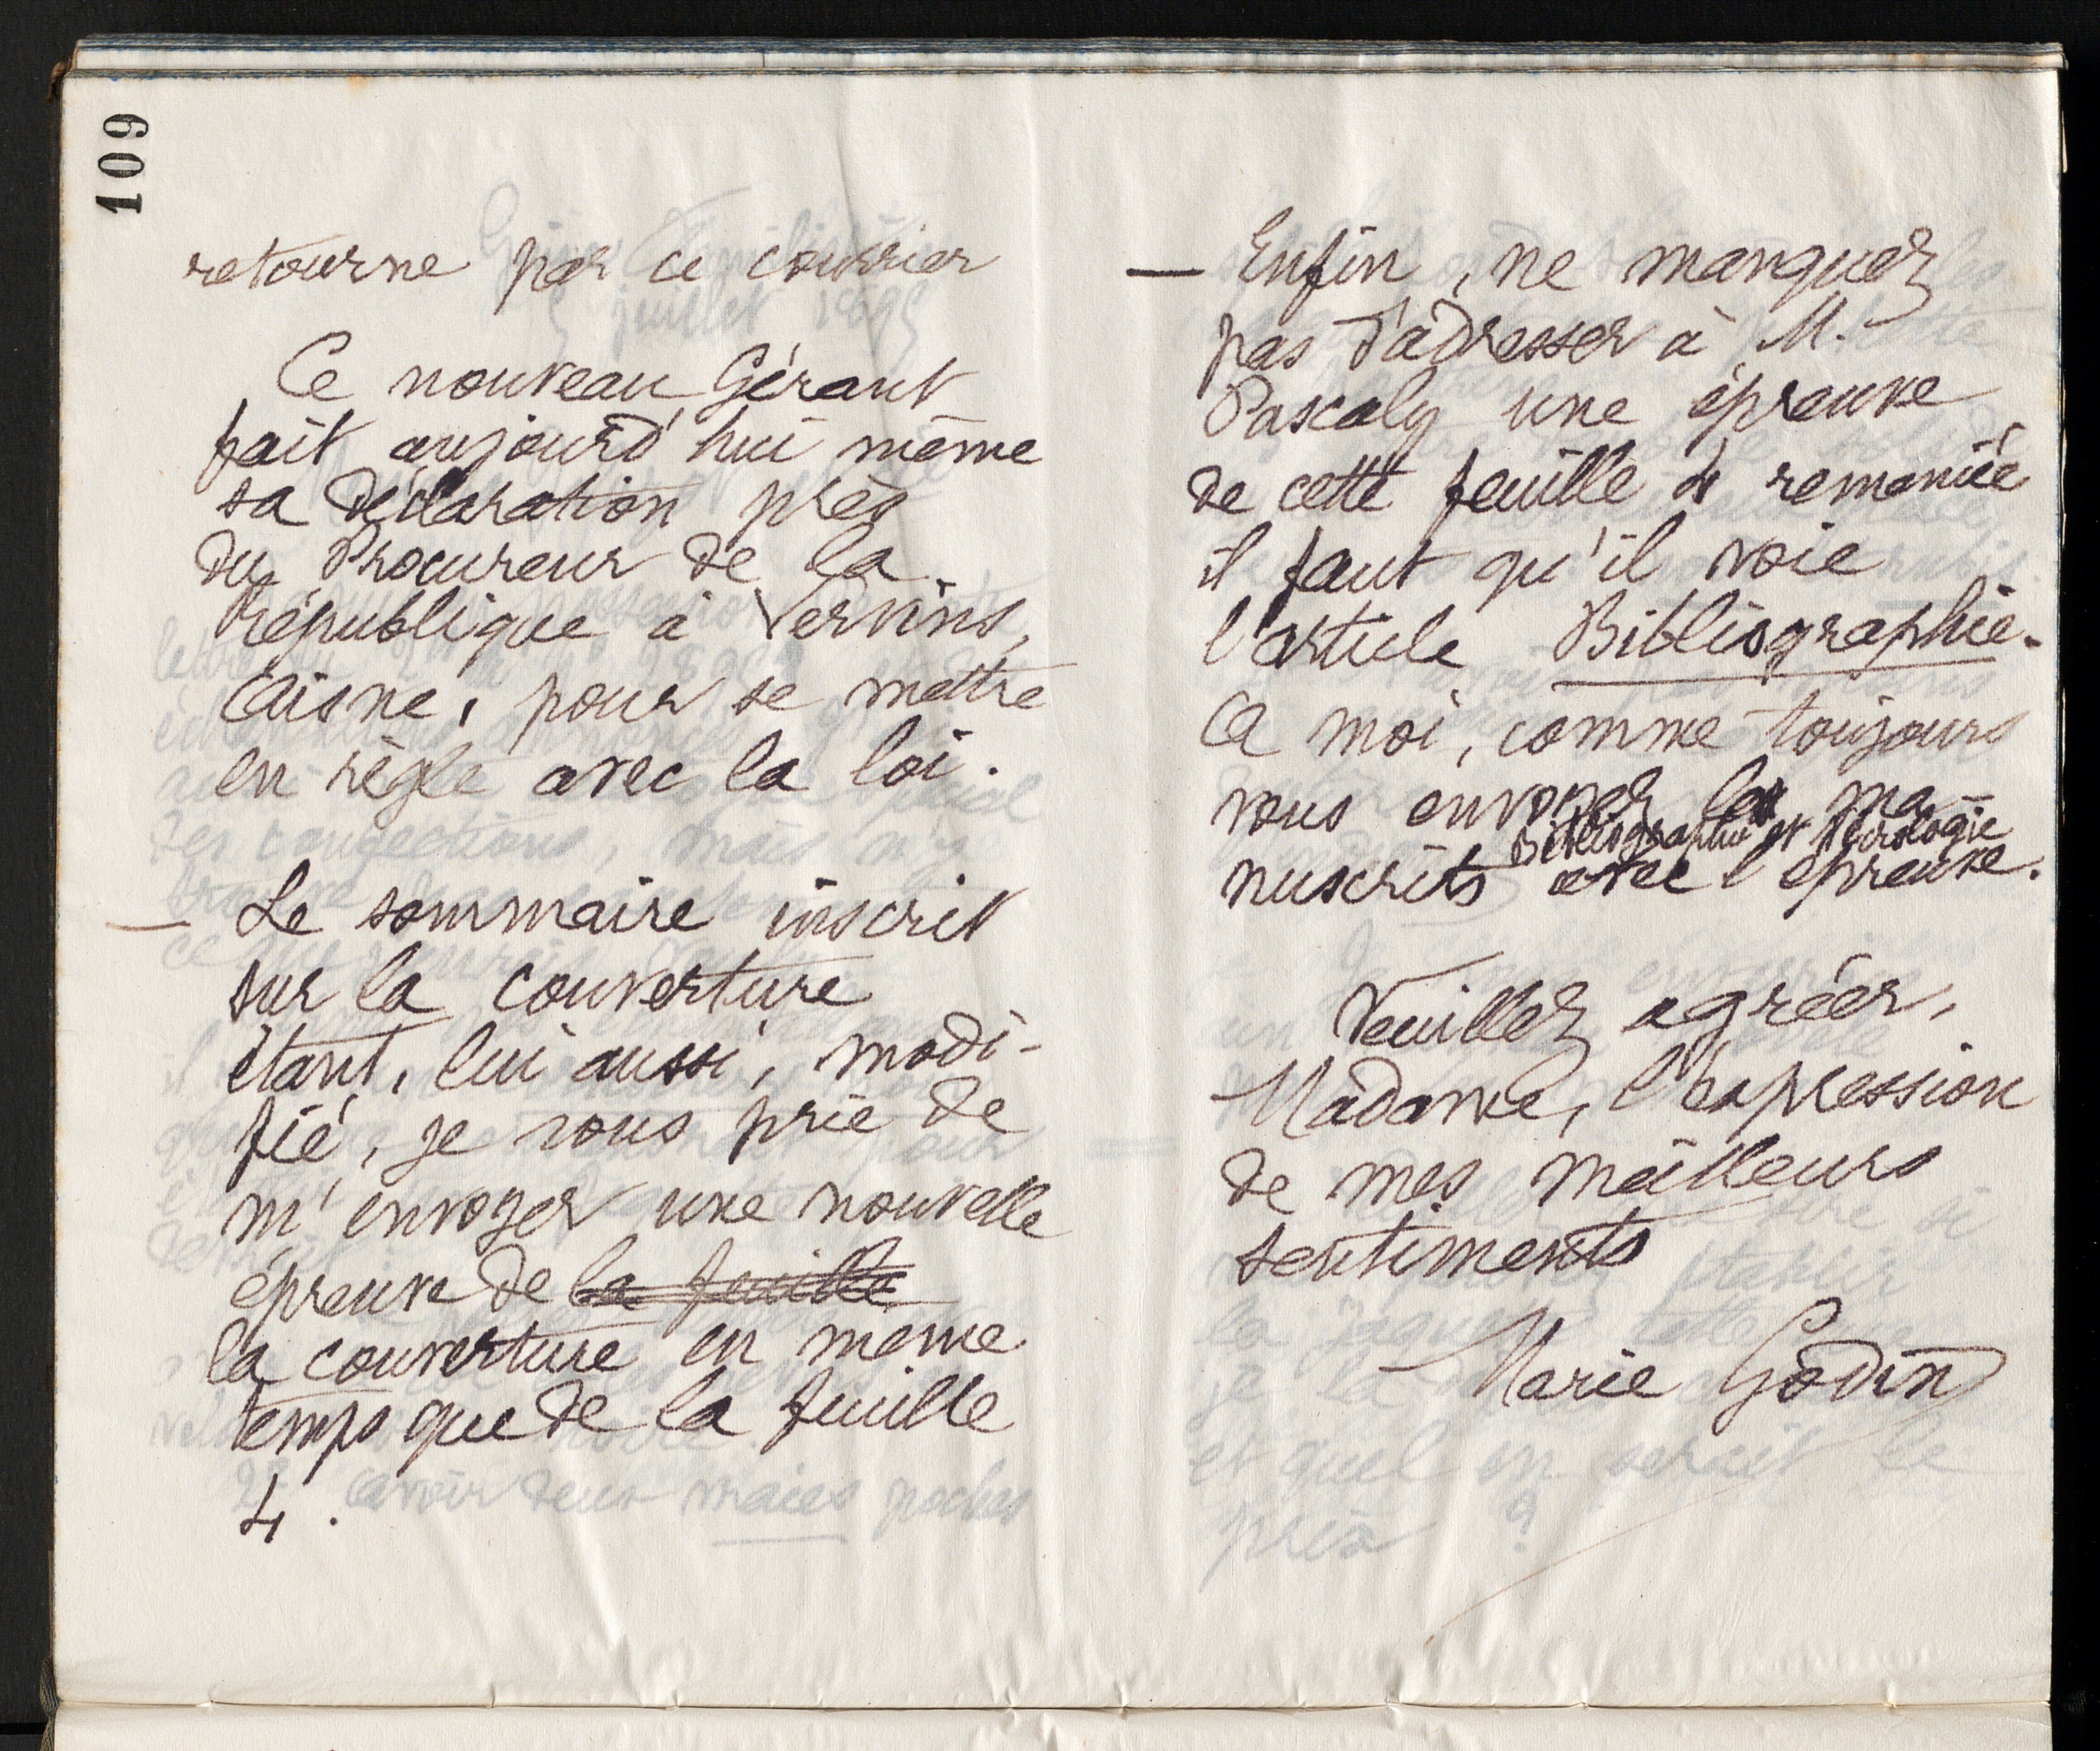 109
retourne par ce courrier
Ce nouveau Gérant
fait aujourd'hui même
sa déclaration près
du Procureur de la
république à Vervins,
Aisne, pour se mettre
en règle avec la loi.
— Le sommaire inscrit
sur la couverture
étant, lui aussi, modi-
fié, je vous prie de
m'envoyer une nouvelle
épreuve de la feuille
la couverture en même
temps que de la feuille
4.
— Enfin, ne manquez
pas d'adresser à M.
Pascaly une épreuve
de cette feuille 4 remaniée
il faut qu'il voie
l'article Bibliographie.
A moi, comme toujours
vous envoyez les ma-
Bibliographie et Nécrologie
nuscrits avec l'épreuve.
Veuillez agréer,
Madame, l'expression
de mes meilleurs
sentiments
Marie Godin